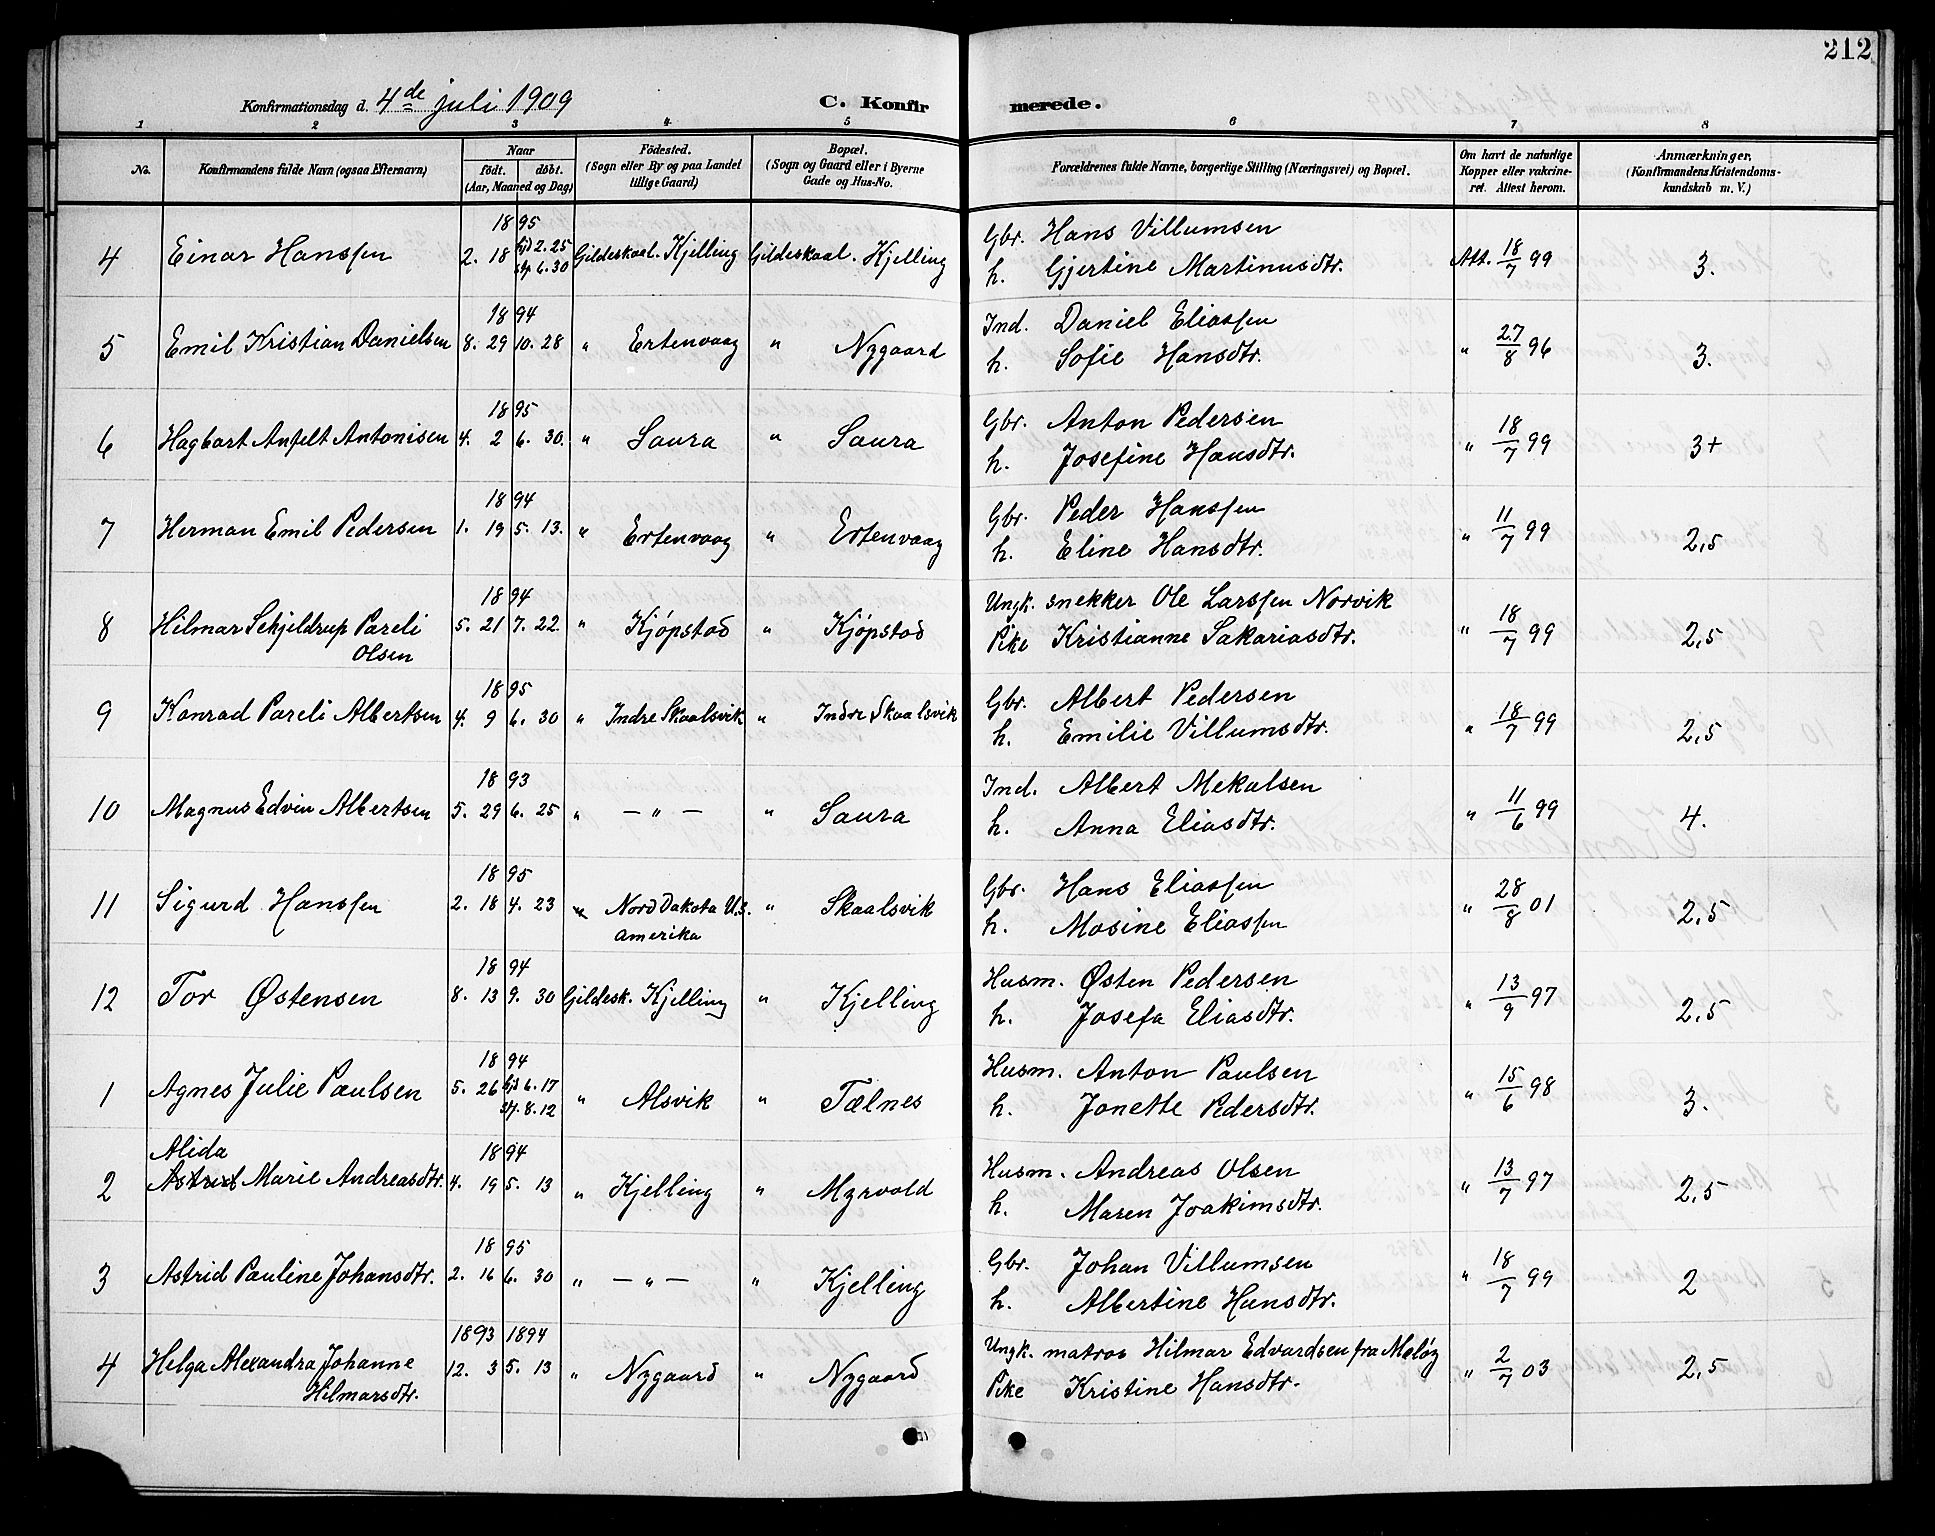 212
Konfirmationsdag d. 4de juli 1909 C. Konfirmerede.
1 2 3 4 5 6 7 8
No. Konfirmandens fulde Navn (ogsaa Efternavn) Naar födt. döbt. (Aar, Maaned og Dag) Födested. (Sogn eller By og paa Landet tillige Gaard) Bopæl. (Sogn og Gaard eller i Byerne Gade og Hus-No. Forældrenes fulde Navne, borgerlige Stilling (Næringsvei) og Bopæl. Om havt de naturlige Kopper eller vakcineret. Attest herom. Anmærkninger. (Konfirmandens Kristendomskundskab m. V.)
1895
4 Einar Hanssen 2. 18 hjd 2.25 st. 6.30 Gildeskaal. Kjelling Gildeskaal. Kjelling Gbr. Hans Villumsen Att. 18/7 99 3.
h. Gjertine Martinusdtr.
1894
5 Emil Kristian Danielsen 8. 29 10. 28 " Ertenvaag " Nygaard Ind. Daniel Eliassen " 27/8 96 3.
h. Sofie Hansdtr.
1895
6 Hagbart Anfelt Antonisen 4. 2 6. 30. " Saura " Saura Gbr. Anton Pedersen " 18/7 99 3+
h. Josefine Hansdtr.
1894
7 Herman Emil Pedersen 1. 19 5. 13. " Ertenvaag " Ertenvaag Gbr. Peder Hanssen " 11/7 99 2,5
h. Eline Hansdtr.
1894
8 Hilmar Schjeldrup Pareli 5. 21 7. 22. " Kjøpstad " Kjøpstad Ungk. snekker Ole Larssen Norvik " 18/7 99 2,5
Olsen Pike Kristianne Sakariasdtr.
1895
9 Konrad Pareli Albertsen 4. 9 6. 30 " Indre Skaalsvik " Indre Skaalsvik Gbr. Albert Pedersen " 18/7 99 2,5
h. Emilie Villumsdtr.
1893
10 Magnus Edvin Albertsen 5. 29 6. 25 " — " — " Saura Ind. Albert Mekalsen " 11/6 99 4.
h. Anna Eliasdtr.
1895
11 Sigurd Hanssen 2. 18 4. 23 Nord Dakota U.S. " Skaalsvik Gbr. Hans Eliassen " 28/8 01 2,5
Amerika h. Mosine Eliassen
1894
12 Tor Østensen 8. 13 9. 30 Gildesk. Kjelling " Kjelling Husm. Østen Pedersen " 13/9 97 2,5
h. Josefa Eliasdtr.
1894
1 Agnes Julie Paulsen 5. 26 hjd 6.17 st. 8.12 " Alsvik " Tælnes Husm. Anton Paulsen " 15/6 98 3.
h. Jonette Pedersdtr.
Alida 1894
2 Astrid Marie Andreasdtr. 4. 19 5. 13 " Kjelling " Myrvold Husm. Andreas Olsen " 13/7 97 2,5
h. Maren Joakimsdtr.
1895
3 Astrid Pauline Johansdtr. 2. 16 6. 30 " — " — " Kjelling Gbr. Johan Villumsen " 18/7 99 2
h. Albertine Hansdtr.
1893 1894
4 Helga Alexandra Johanne 12. 3 5. 13 " Nygaard " Nygaard Ungk. matros Hilmar Edvardsen fra Meløy " 2/7 03 2,5
Hilmarsdtr. Pike Kristine Hansdtr.